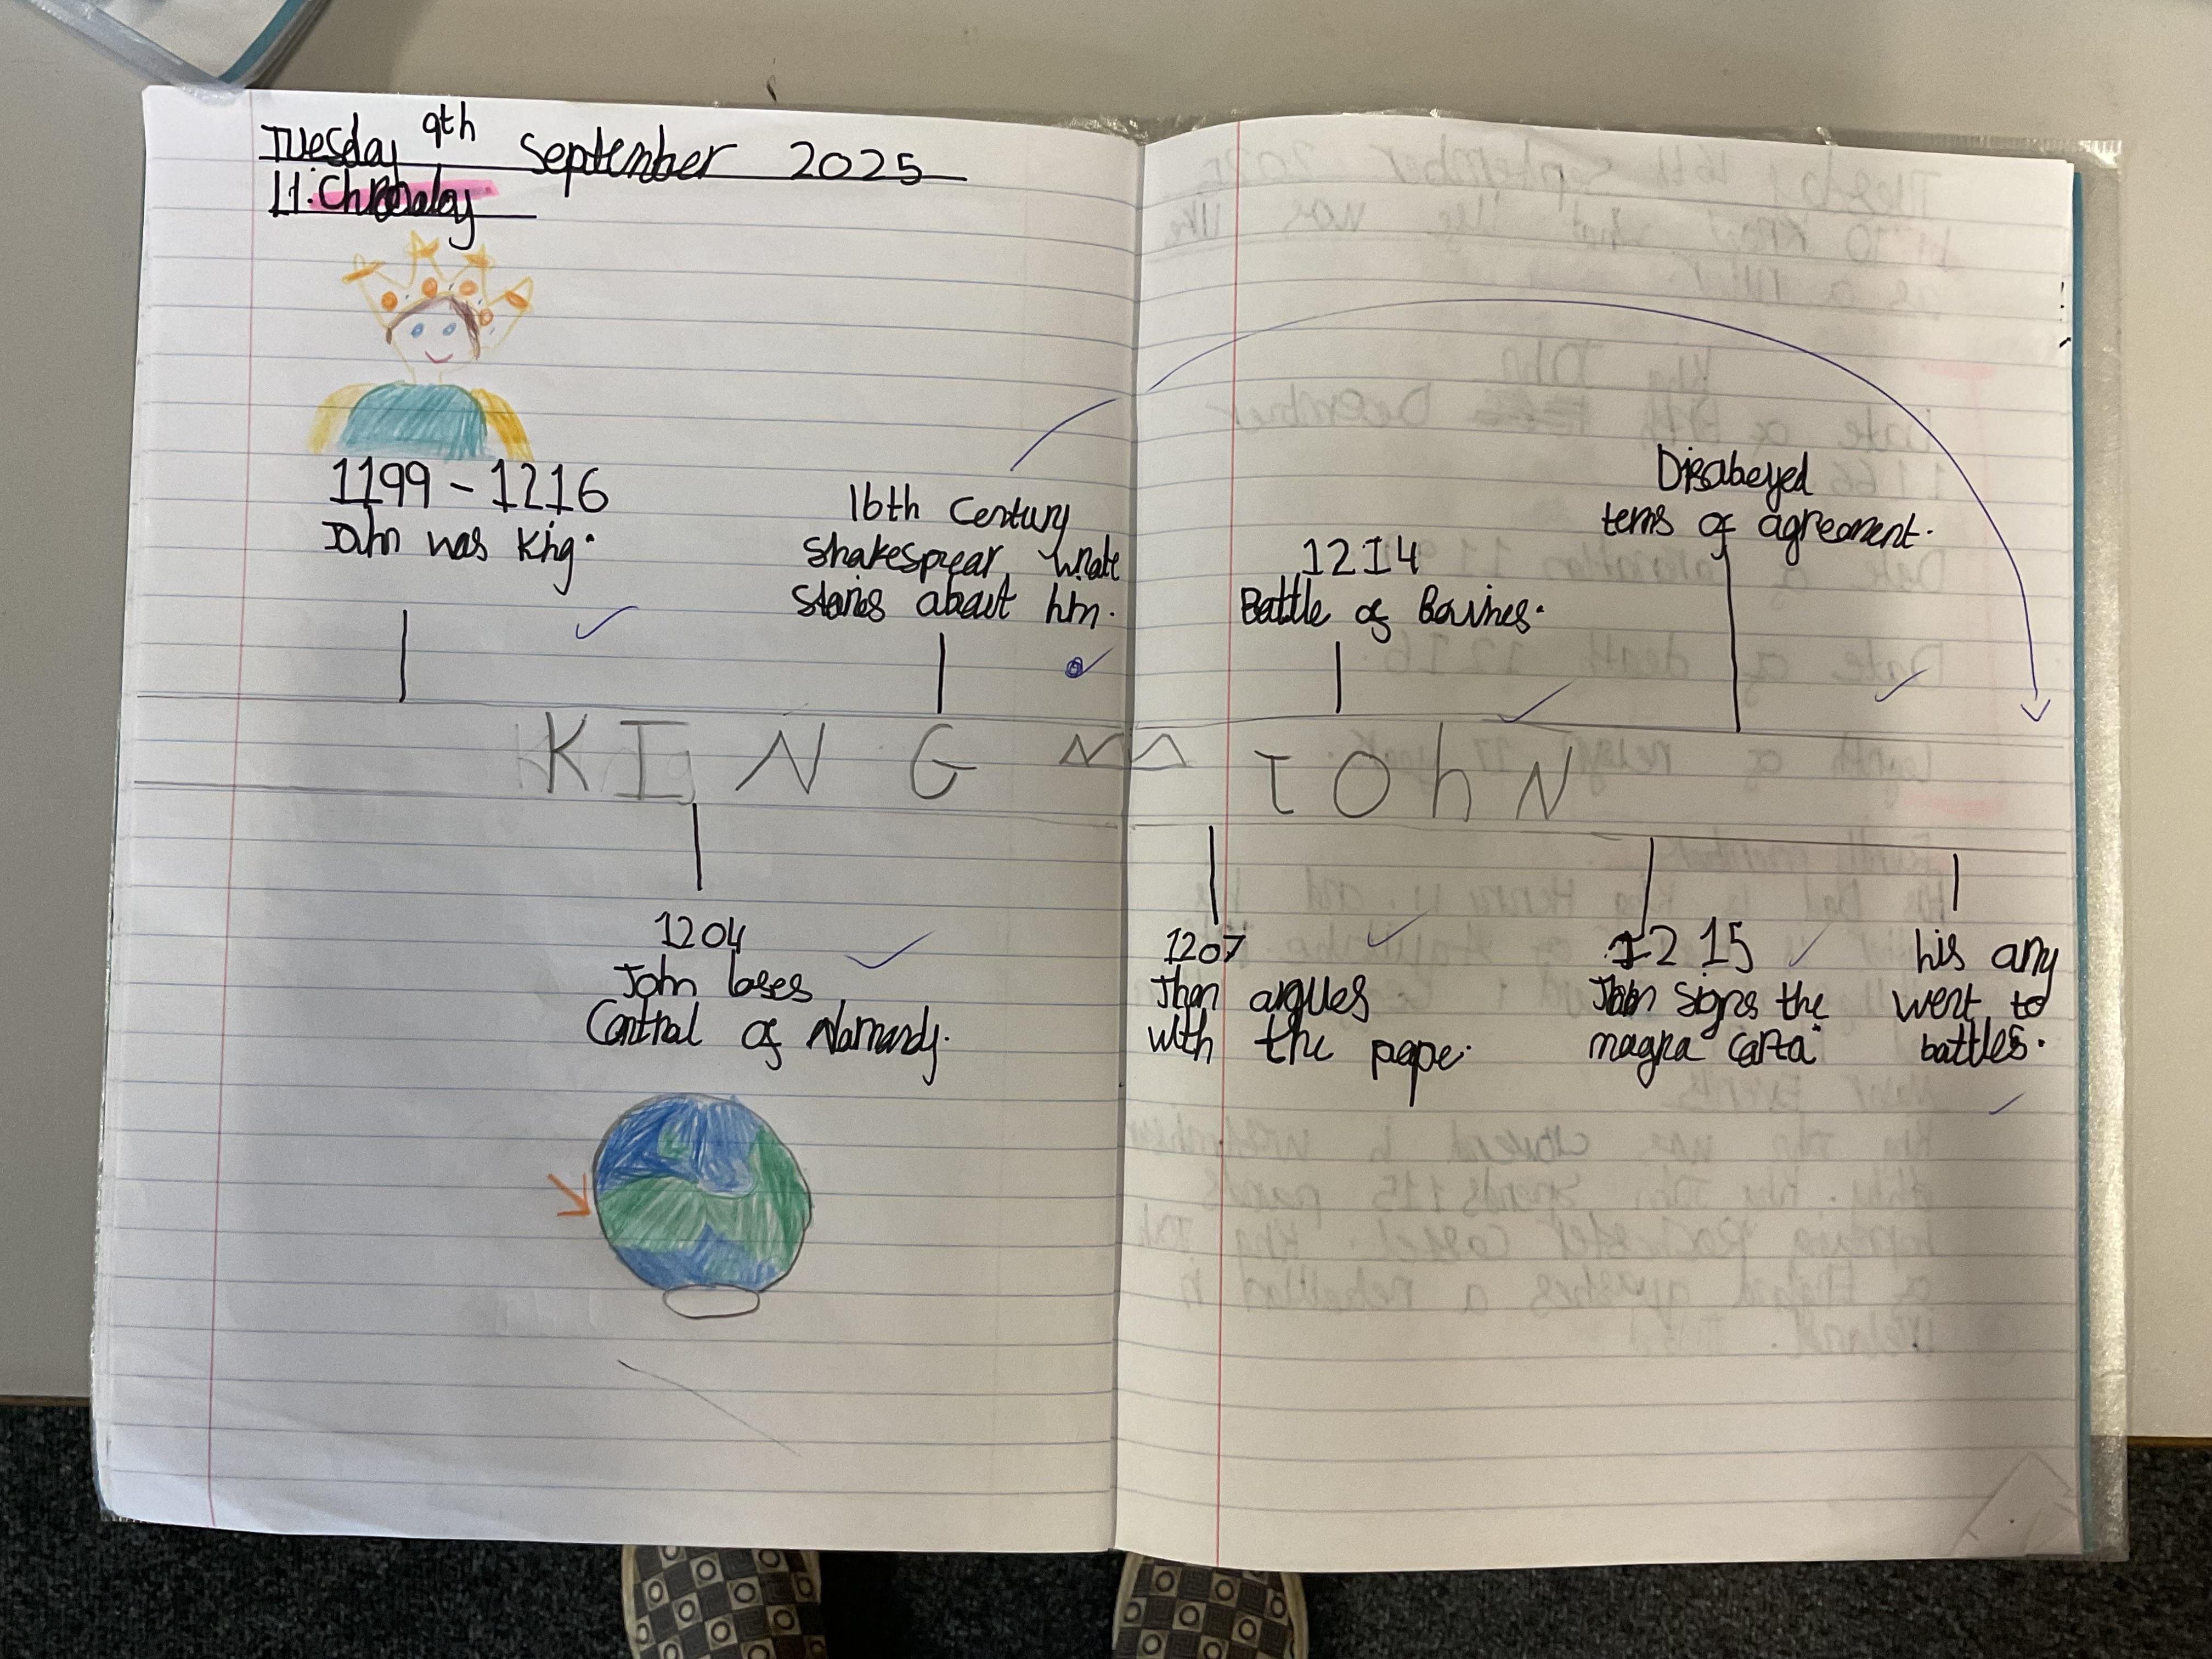 Tuesday 9th September 2025
LI: Chronology
1199 - 1216
John was king.
16th Century
Shakespear wrote
stories about him.
1214
Battle of Bovines.
Disobeyed
terms of agreement.
KING JOhN
1204
John loses
Control of Normandy.
1207
Jhon argues
with the pope.
1215
John signs the
magna carta
his army
went to
battles.